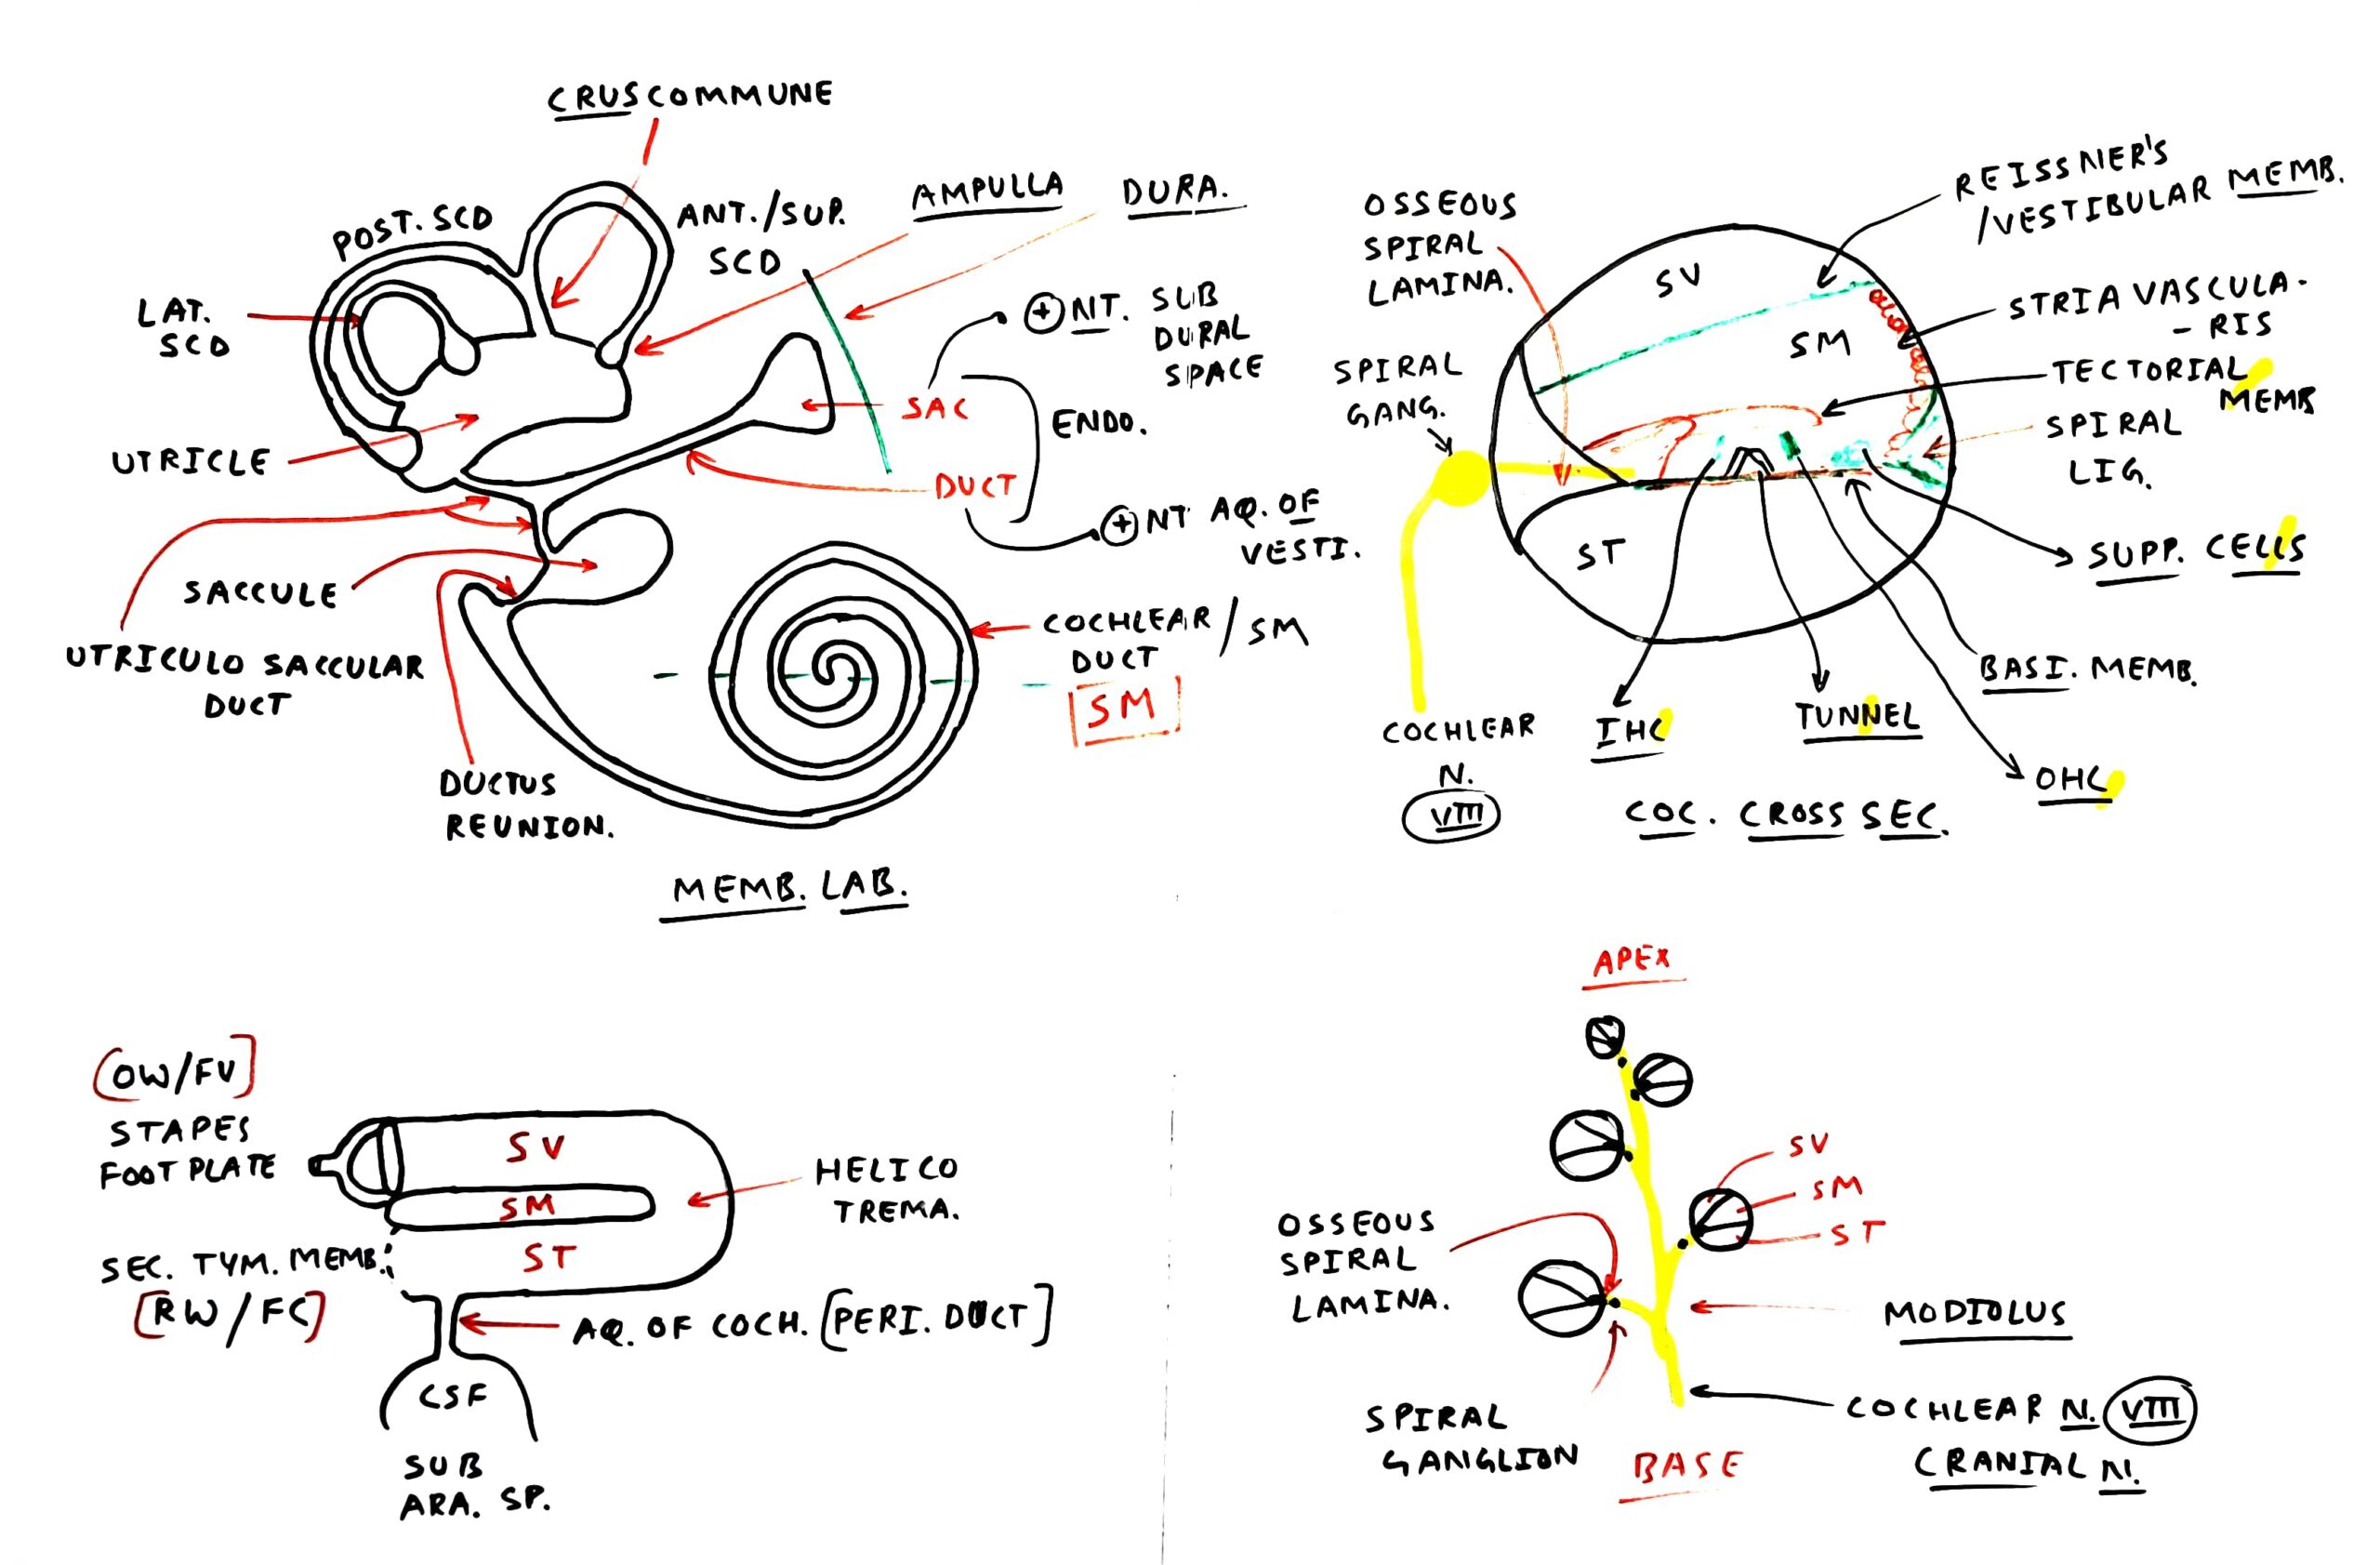 CRUSCOMMUNE
POST. SCD
ANT./SUP.
SCD
AMPULLA
DURA.
LAT.
SCD
⊕NT. SUB
DURAL
SPACE
SAC
ENDO.
UTRICLE
DUCT
⊕NT AQ. OF
VESTI.
SACCULE
UTRICULO SACCULAR
DUCT
COCHLEAR / SM
DUCT
[SM]
DUCTUS
REUNION.
MEMB. LAB.
OSSEOUS
SPIRAL
LAMINA.
REISSNER'S
/VESTIBULAR MEMB.
SV
STRIA VASCULA-
- RIS
SM
SPIRAL
GANG.
TECTORIAL
MEMB
SPIRAL
LIG.
ST
SUPP. CELLS
BASI. MEMB.
COCHLEAR
N.
VIII
IHC
TUNNEL
OHC
COC. CROSS SEC.
[OW/FV]
STAPES
FOOT PLATE
SV
SM
HELICO
TREMA.
ST
SEC. TYM. MEMB.
[RW/FC]
AQ. OF COCH. [PERI. DUCT]
CSF
SUB
ARA. SP.
APEX
SV
SM
ST
OSSEOUS
SPIRAL
LAMINA.
MODIOLUS
SPIRAL
GANGLION
BASE
COCHLEAR N. VIII
CRANIAL N.